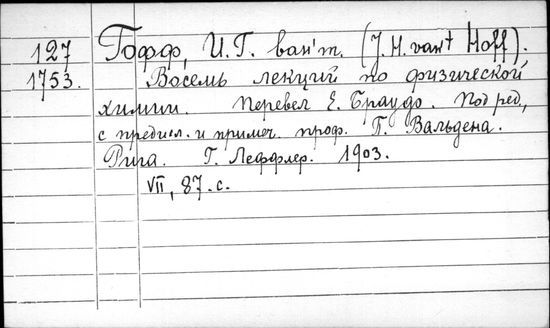 127 Гофф, И. Г. ван'т. (J. H. van't Hoff).
1753. Восемь лекций по физической
химии. Перевел Е. Браудо. Под ред,
с предисл. и примеч. проф. П. Вальдена.
Рига. Г. Леффлер. 1903.
VII, 87. с.